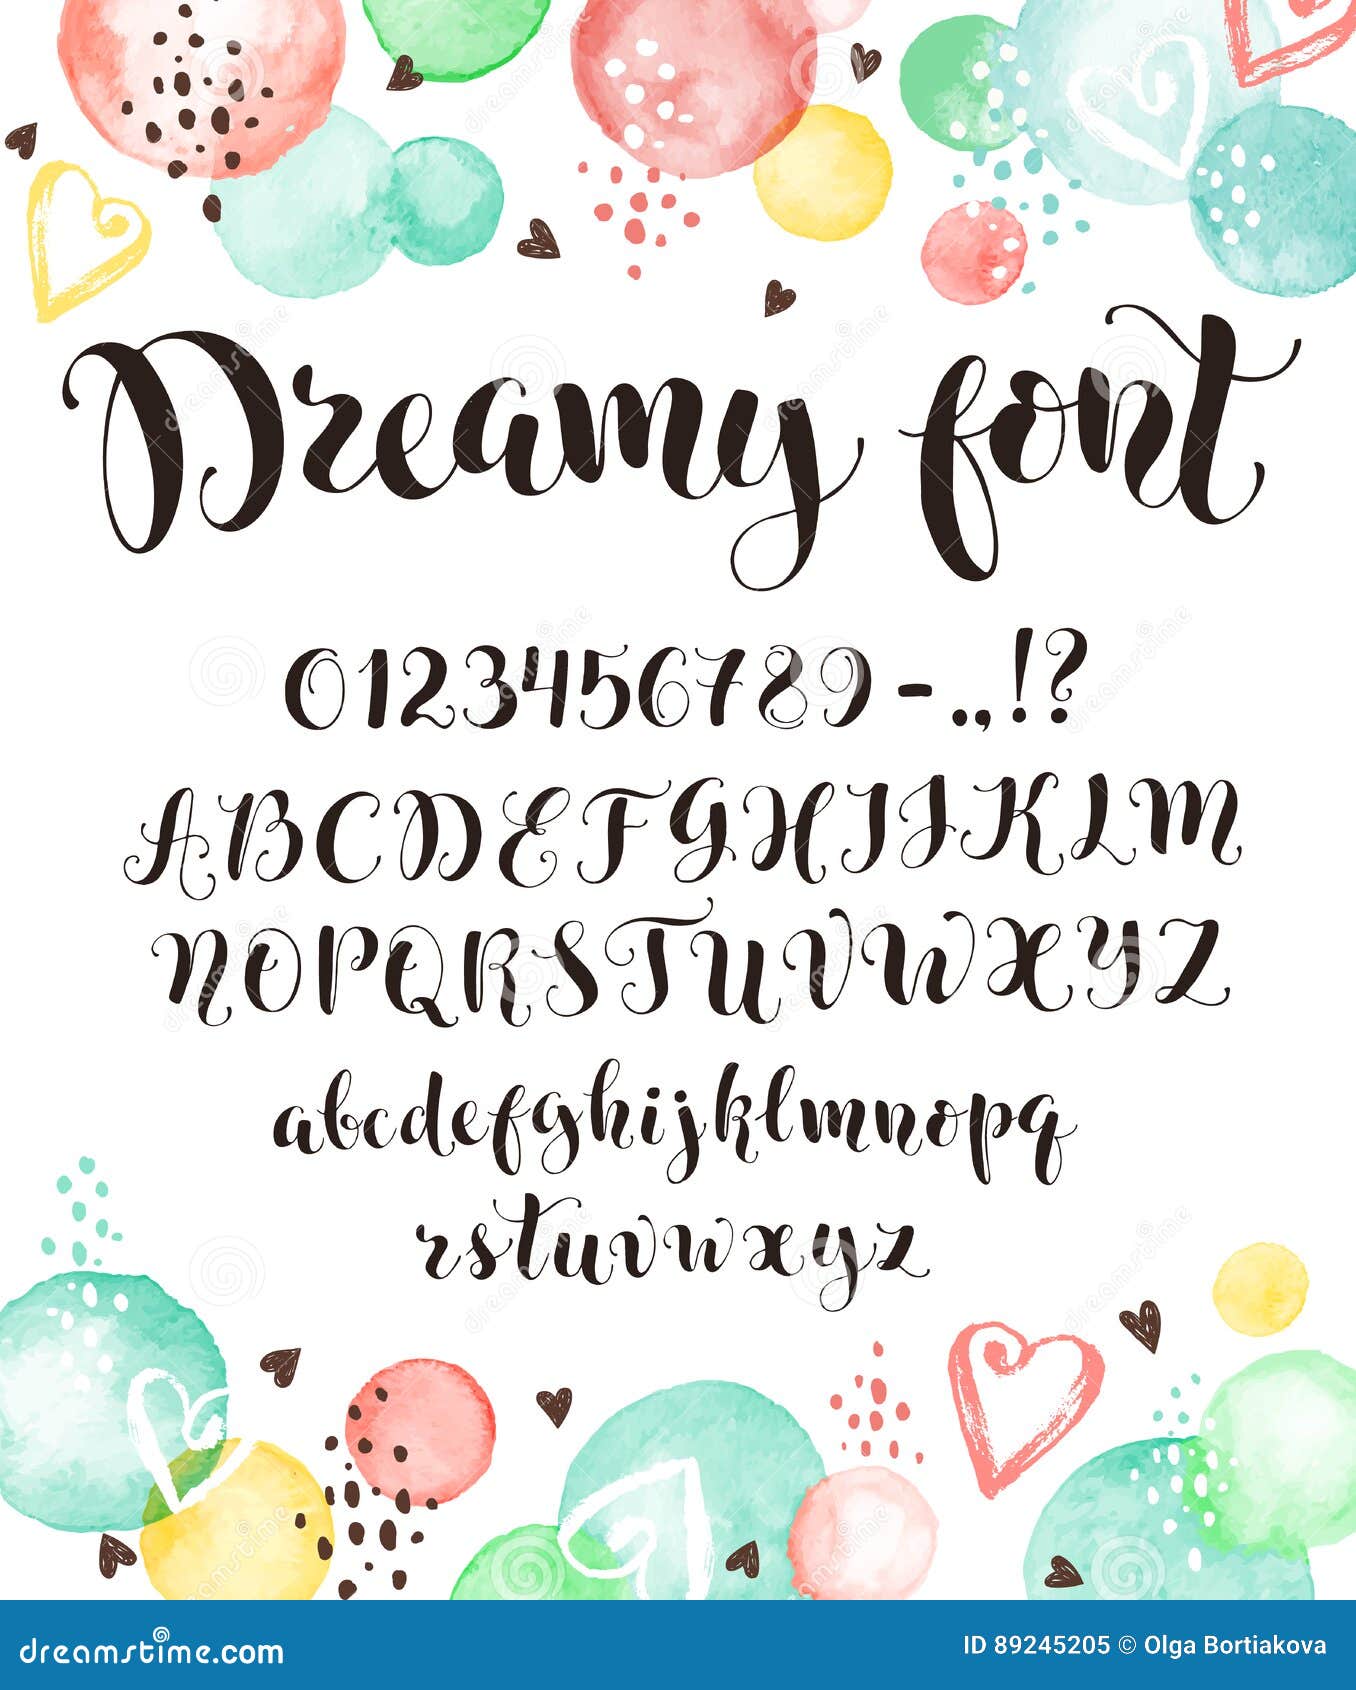 Dreamy font
0123456789 - ., !?
ABCDEFGHIJKLM
NOPQRSTUVWXYZ
abcdefghijklmnopq
rstuvwxyz
dreamstime.com
ID 89245205 © Olga Bortiakova